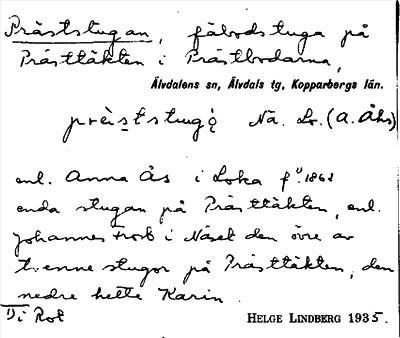 Präststugan, fäbodstuga på
Prästtäkten i Prästbodarna,
Älvdalens sn, Älvdals tg, Kopparbergs län.
prèi̱ststugǫ̀ Nä. Lo. (A. Åhs)
enl. Anna Ås i Loka f. 1862
enda stugan på Prästtäkten, enl.
Johannes Frost i Näset den övre av
tvenne stugor på Prästtäkten, den
nedre hette Karin
1) i Rot
HELGE LINDBERG 1935.